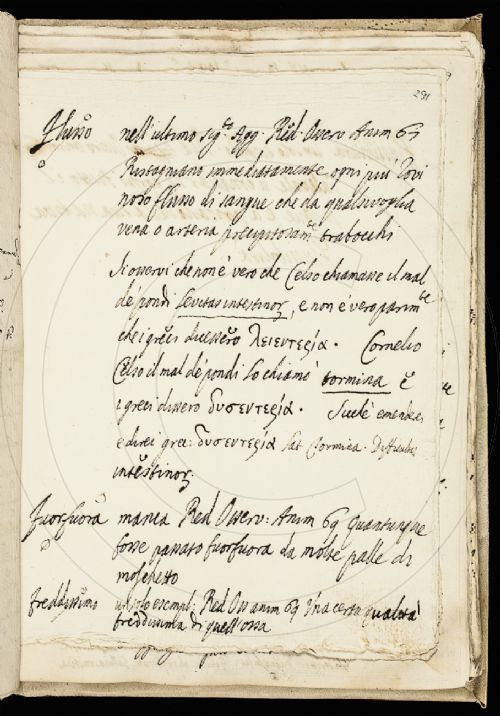 291
Flusso nell'ultimo sig.to Agg. Red. Osserv Anim 63
Ristagnano immediatamente ogni più rovi
noso flusso di sangue che da qualsivoglia
vena o arteria precipitosam.te trabocchi
Si osservi che non è vero che Celso chiamasse il mal
de' pondi Levitas intestinor, e non è vero parim.te
che i greci dicessero λειεντερία. Cornelio
Celso il mal de' pondi lo chiamò tormina e
i greci dissero δυσεντερία. Si de' emendar
e direi grec: δυσεντερία Lat. Tormina. Difficultas
intestinor
Fuorfuora manca Red Osserv: Anim 69 quantunque
fosse passato fuorfuora da molte palle di
moschetto
freddissimo un solo esempl: Red Oss anim 69 Una certa qualità
freddissima di quell'ossa